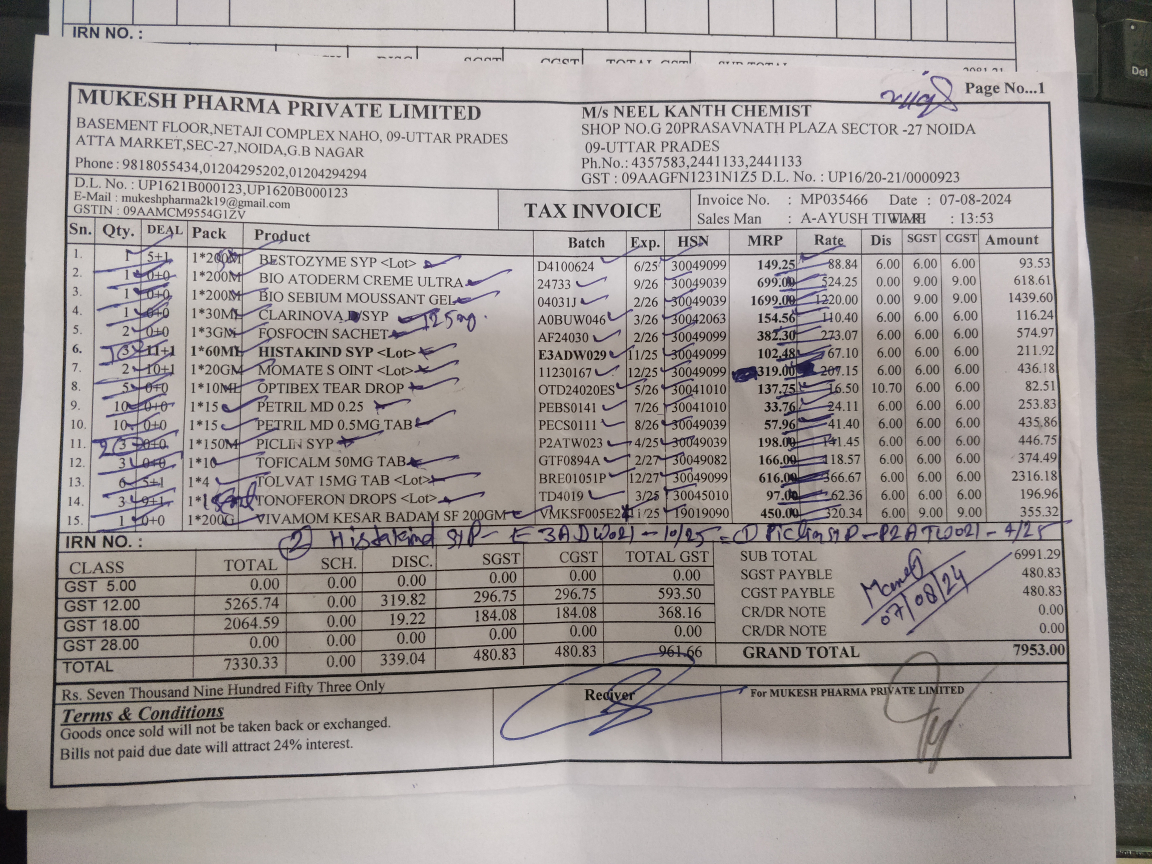 IRN NO. :
Page No...1
MUKESH PHARMA PRIVATE LIMITED
BASEMENT FLOOR,NETAJI COMPLEX NAHO, 09-UTTAR PRADES
ATTA MARKET,SEC-27,NOIDA,G.B NAGAR
Phone : 9818055434,01204295202,01204294294
D.L. No. : UP1621B000123,UP1620B000123
E-Mail : mukeshpharma2k19@gmail.com
GSTIN : 09AAMCM9554G1ZV
M/s NEEL KANTH CHEMIST
SHOP NO.G 20PRASAVNATH PLAZA SECTOR -27 NOIDA
09-UTTAR PRADES
Ph.No.: 4357583,2441133,2441133
GST : 09AAGFN1231N1Z5 D.L. No. : UP16/20-21/0000923
TAX INVOICE
Invoice No. : MP035466 Date : 07-08-2024
Sales Man : A-AYUSH : 13:53
Sn. Qty. DEAL Pack Product Batch Exp. HSN MRP Rate Dis SGST CGST Amount
1. 1 5+1 1*200M BESTOZYME SYP <Lot> D4100624 6/25 30049099 149.25 88.84 6.00 6.00 6.00 93.53
2. 1 0+0 1*200M BIO ATODERM CREME ULTRA 24733 9/26 30049039 699.00 524.25 0.00 9.00 9.00 618.61
3. 1 0+0 1*200M BIO SEBIUM MOUSSANT GEL 04031J 2/26 30049039 1699.00 1220.00 0.00 9.00 9.00 1439.60
4. 1 0+0 1*30ML CLARINOVA SYP 125mg A0BUW046 3/26 30042063 154.56 110.40 6.00 6.00 6.00 116.24
5. 2 0+0 1*3GM FOSFOCIN SACHET AF24030 2/26 30049099 382.30 273.07 6.00 6.00 6.00 574.97
6. 3 11+1 1*60ML HISTAKIND SYP <Lot> E3ADW029 11/25 30049099 102.48 67.10 6.00 6.00 6.00 211.92
7. 2 10+1 1*20GM MOMATE S OINT <Lot> 11230167 12/25 30049099 319.00 207.15 6.00 6.00 6.00 436.18
8. 5 0+0 1*10ML OPTIBEX TEAR DROP OTD24020ES 5/26 30041010 137.75 16.50 10.70 6.00 6.00 82.51
9. 10 0+0 1*15 PETRIL MD 0.25 PEBS0141 7/26 30041010 33.76 24.11 6.00 6.00 6.00 253.83
10. 10 0+0 1*15 PETRIL MD 0.5MG TAB PECS0111 8/26 30049039 57.96 41.40 6.00 6.00 6.00 435.86
11. 3 0+0 1*150M PICLIN SYP P2ATW023 4/25 30049039 198.00 141.45 6.00 6.00 6.00 446.75
12. 3 0+0 1*10 TOFICALM 50MG TAB GTF0894A 2/27 30049082 166.00 118.57 6.00 6.00 6.00 374.49
13. 6 5+1 1*4 TOLVAT 15MG TAB <Lot> BRE01051P 12/27 30049099 616.00 366.67 6.00 6.00 6.00 2316.18
14. 3 9+1 TONOFERON DROPS <Lot> TD4019 3/25 30045010 97.00 62.36 6.00 6.00 6.00 196.96
15. 1 0+0 1*200G VIVAMOM KESAR BADAM SF 200GM 19019090 450.00 320.34 6.00 9.00 9.00 355.32
IRN NO. : (2) Histakind SYP - E3ADW021 - 10/25 = (1) Piclin SYP - P2ATW021 - 4/25
CLASS TOTAL SCH. DISC. SGST CGST TOTAL GST
GST 5.00 0.00 0.00 0.00 0.00 0.00 0.00
GST 12.00 5265.74 0.00 319.82 296.75 296.75 593.50
GST 18.00 2064.59 0.00 19.22 184.08 184.08 368.16
GST 28.00 0.00 0.00 0.00 0.00 0.00 0.00
TOTAL 7330.33 0.00 339.04 480.83 480.83 961.66
SUB TOTAL 6991.29
SGST PAYBLE 480.83
CGST PAYBLE 480.83
CR/DR NOTE 0.00
CR/DR NOTE 0.00
07/08/24
GRAND TOTAL 7953.00
Rs. Seven Thousand Nine Hundred Fifty Three Only
Terms & Conditions
Goods once sold will not be taken back or exchanged.
Bills not paid due date will attract 24% interest.
Reciver
For MUKESH PHARMA PRIVATE LIMITED
Del